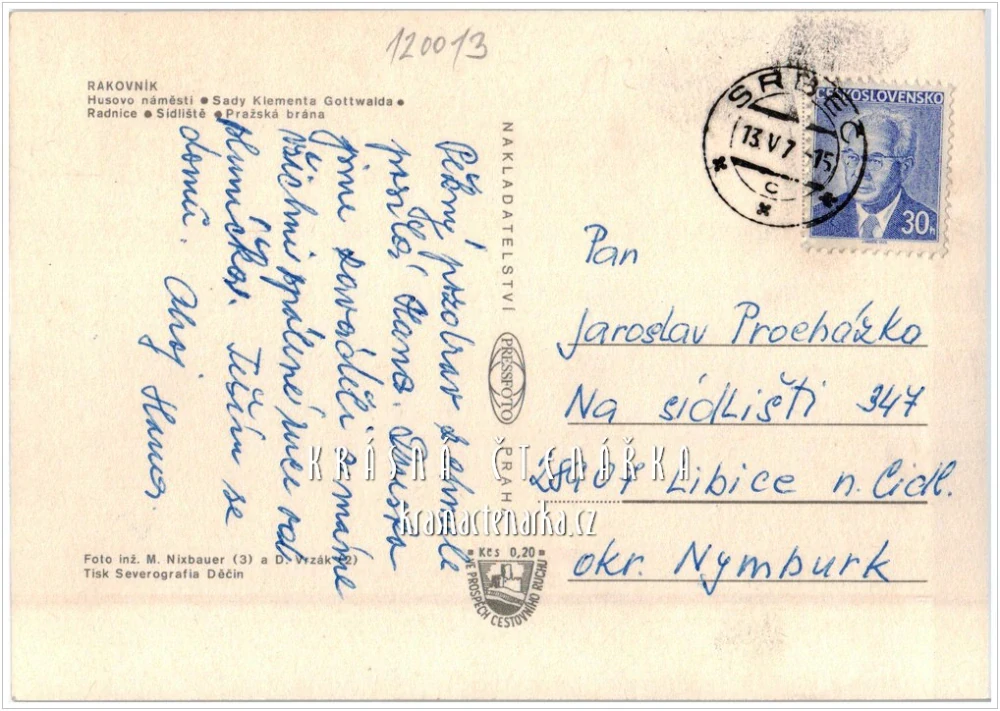 120013
RAKOVNÍK
Husovo náměstí ● Sady Klementa Gottwalda ●
Radnice ● Sídliště ● Pražská brána
Pěkný pozdrav z
posílá Hana. Dnes
jsme zaváděli a máme
všichni spálené ruce od
sluníčka. Těším se
domů. Ahoj Hana.
Foto inž. M. Nixbauer (3) a D. Vrzák (2)
Tisk Severografia Děčín
NAKLADATELSTVÍ PRESSFOTO PRAHA
Kčs 0,20
VE PROSPĚCH CESTOVNÍHO RUCHU
SRBEČ
13.V.7 -15
C
ČESKOSLOVENSKO
30h
Pan
Jaroslav Procházka
Na sídlišti 347
28907 Libice n. Cidl.
okr. Nymburk
KRÁSNÁ ČTENÁŘKA
krasnactenarka.cz